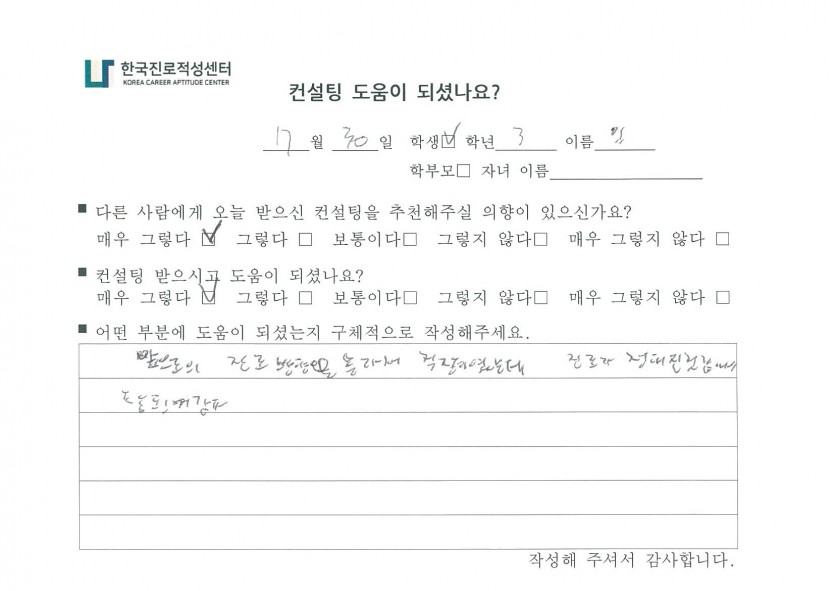 한국진로적성센터
KOREA CAREER APTITUDE CENTER
컨설팅 도움이 되셨나요?
월 30 일 학생☑ 학년 3 이름
학부모□ 자녀 이름
■ 다른 사람에게 오늘 받으신 컨설팅을 추천해주실 의향이 있으신가요?
매우 그렇다 ☑ 그렇다 □ 보통이다□ 그렇지 않다□ 매우 그렇지 않다 □
■ 컨설팅 받으시고 도움이 되셨나요?
매우 그렇다 ☑ 그렇다 □ 보통이다□ 그렇지 않다□ 매우 그렇지 않다 □
■ 어떤 부분에 도움이 되셨는지 구체적으로 작성해주세요.
앞으로의 진로 방향을 몰라서 걱정이였는데 진로가
작성해 주셔서 감사합니다.